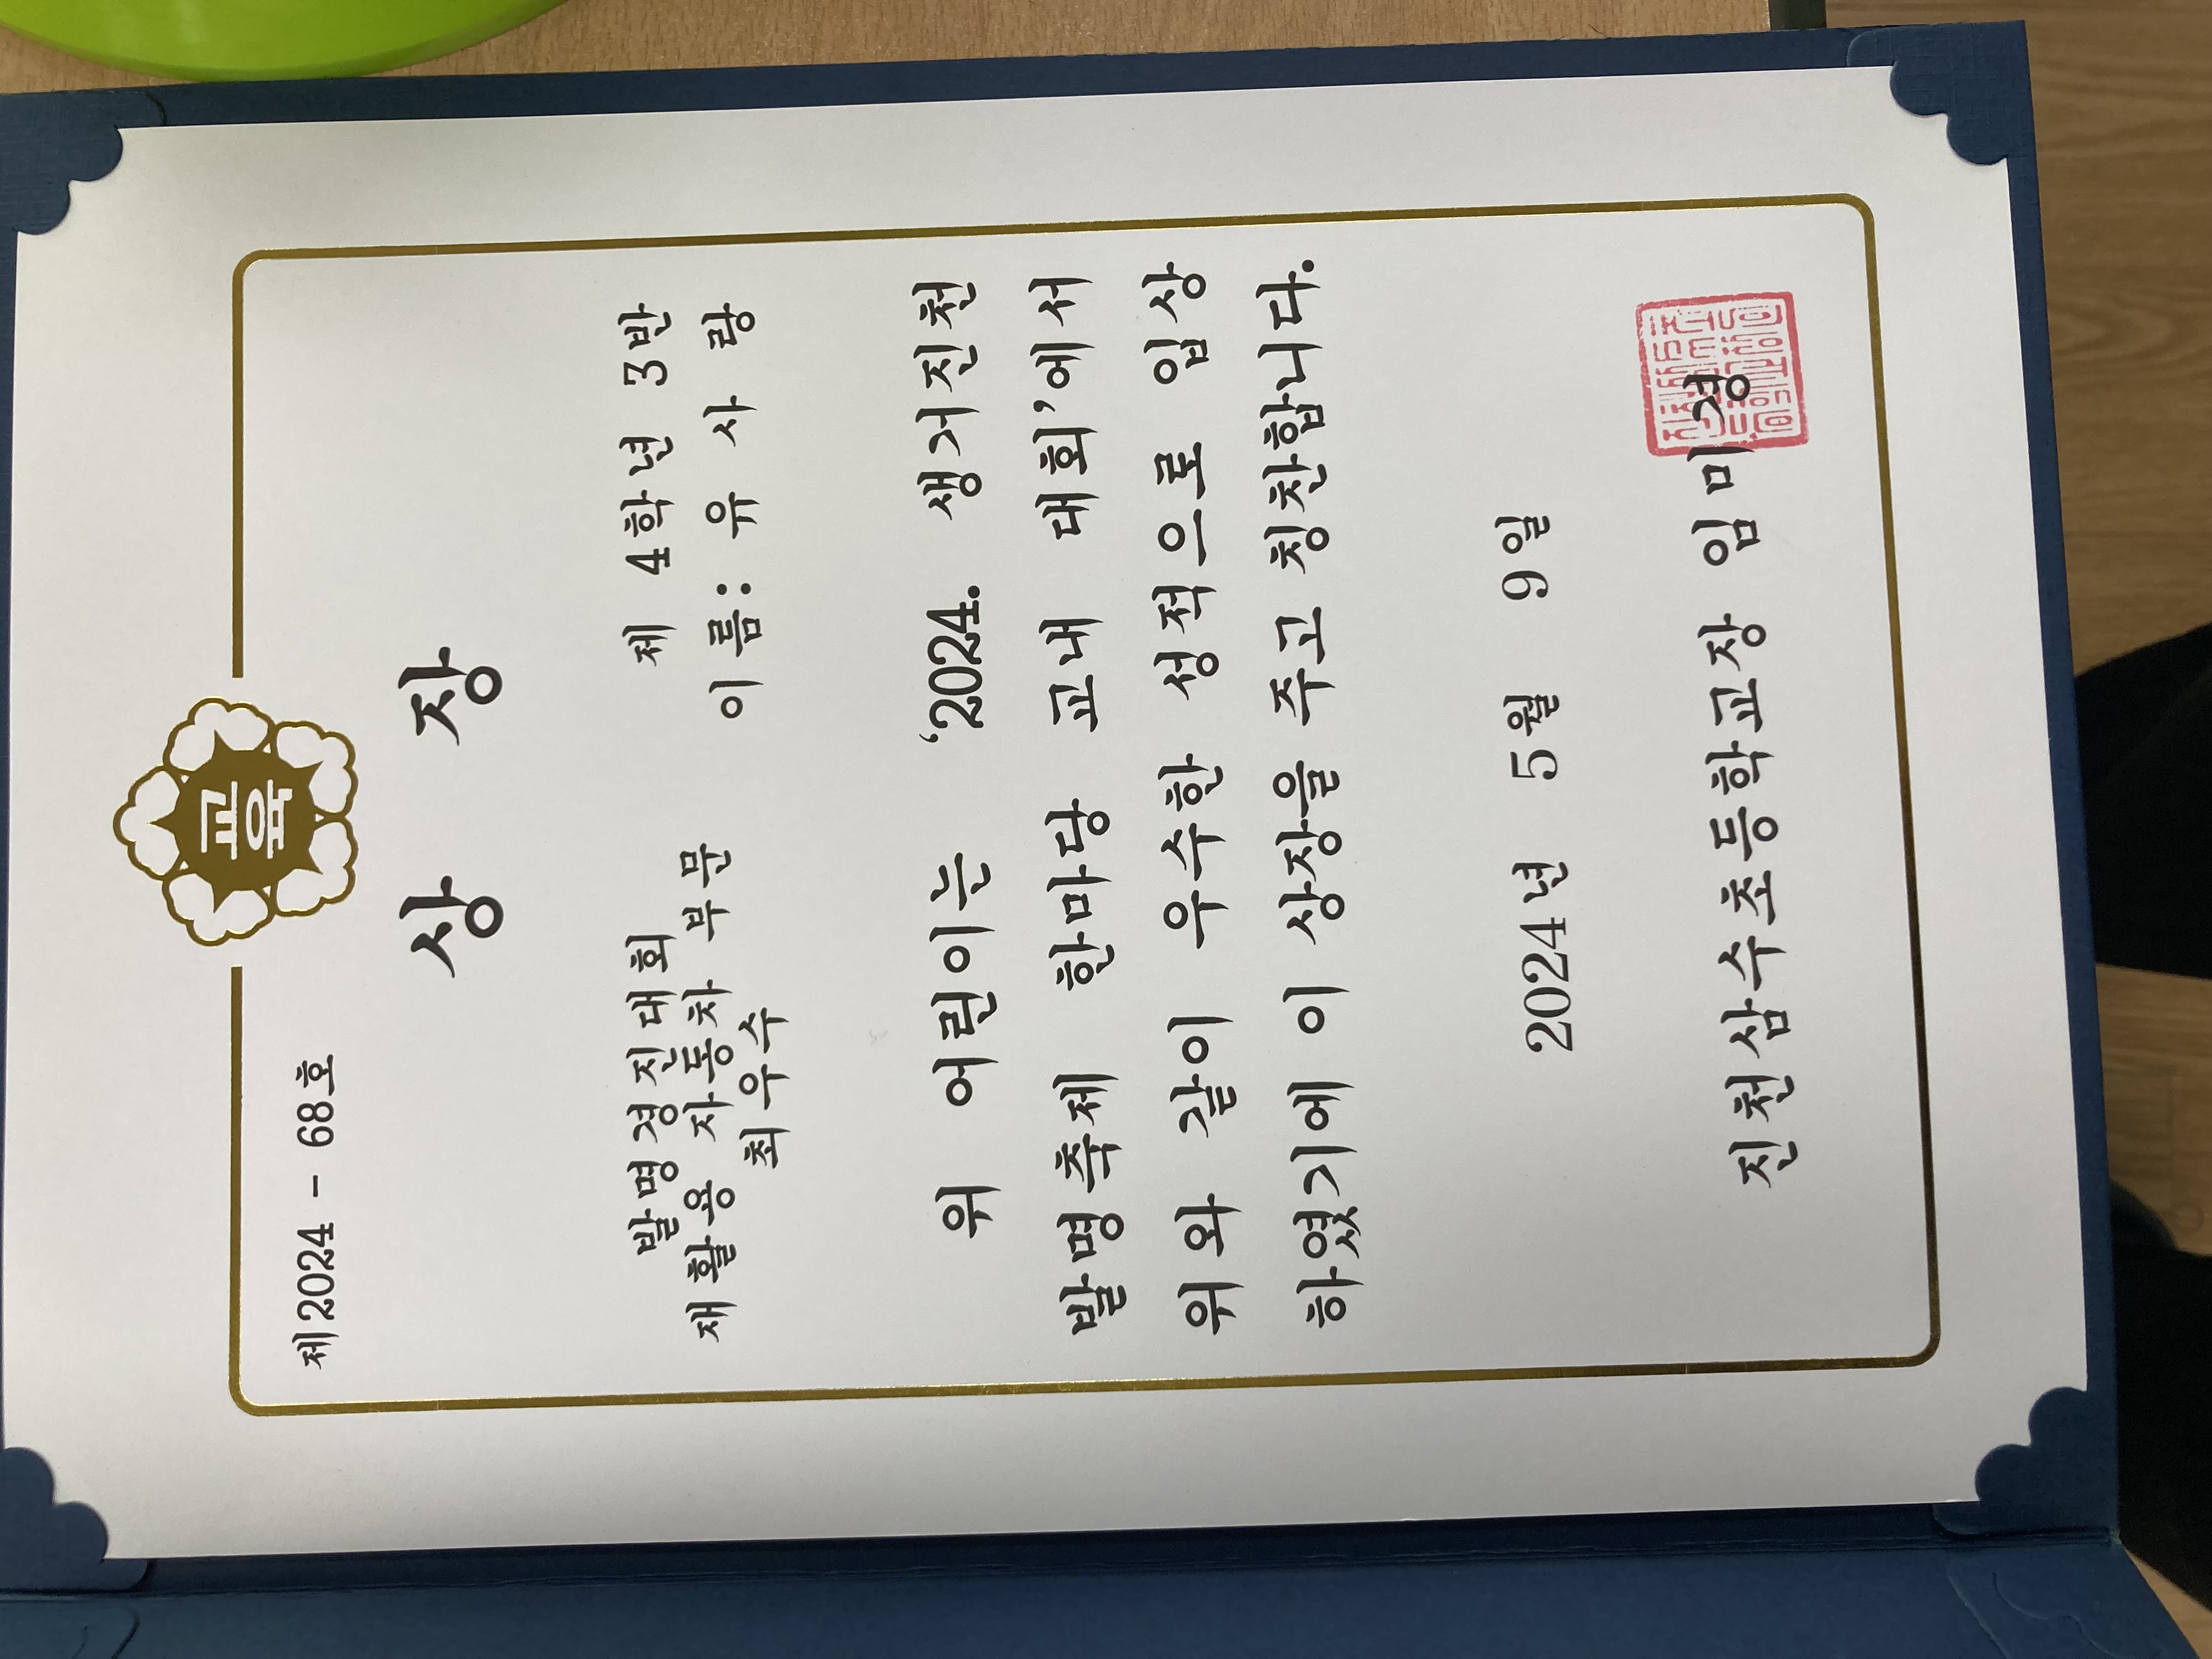 교육
제2024 - 68호
상 장
발명경진대회
재활용 자동차 부문
최우수
제 4학년 3반
이름: 유 사 랑
위 어린이는 ‘2024. 생거진천
발명축제 한마당 교내 대회’에서
위와 같이 우수한 성적으로 입상
하였기에 이 상장을 주고 칭찬합니다.
2024년 5월 9일
진천삼수초등학교장 임미경